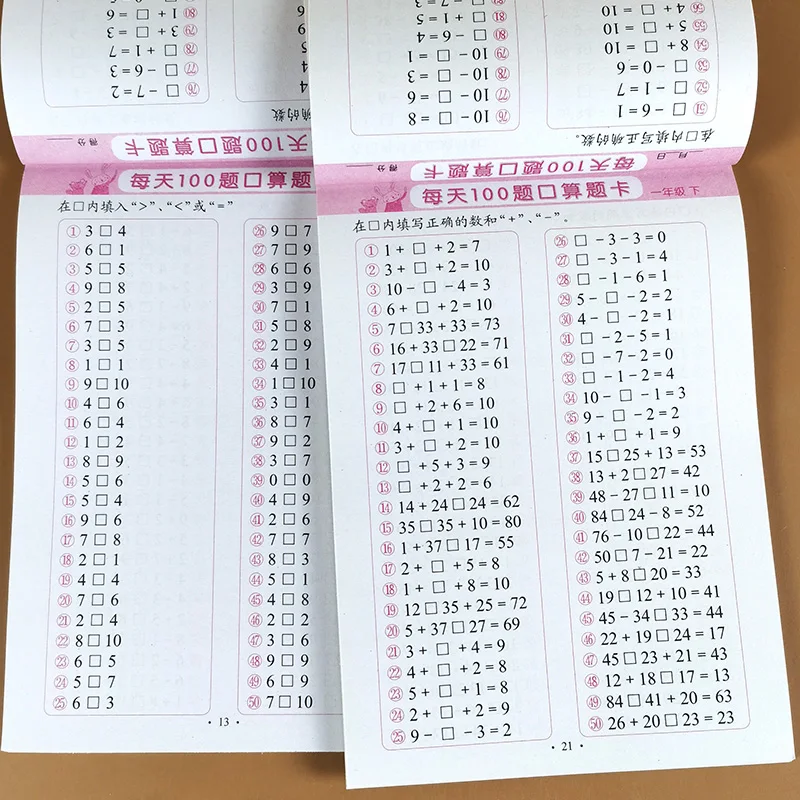 每天100题口算题
在□内填入“>”、“<”或“=”
① 3 □ 4
② 6 □ 1
③ 5 □ 5
④ 9 □ 8
⑤ 2 □ 5
⑥ 7 □ 3
⑦ 3 □ 5
⑧ 1 □ 1
⑨ 9 □ 10
⑩ 4 □ 6
⑪ 6 □ 4
⑫ 1 □ 2
⑬ 8 □ 9
⑭ 5 □ 6
⑮ 5 □ 4
⑯ 9 □ 6
⑰ 7 □ 8
⑱ 2 □ 1
⑲ 4 □ 4
⑳ 7 □ 6
㉑ 2 □ 4
㉒ 8 □ 10
㉓ 6 □ 5
㉔ 5 □ 7
㉕ 6 □ 3
㉖ 9 □ 7
㉗ 7 □ 9
㉘ 6 □ 6
㉙ 3 □ 9
㉚ 7 □ 1
㉛ 5 □ 8
㉜ 2 □ 9
㉝ 4 □ 1
㉞ 1 □ 10
㉟ 3 □ 1
㊱ 8 □ 7
㊲ 9 □ 2
㊳ 3 □ 7
㊴ 0 □ 0
㊵ 4 □ 9
㊶ 2 □ 6
㊷ 7 □ 7
㊸ 8 □ 3
㊹ 5 □ 1
㊺ 4 □ 8
㊻ 2 □ 2
㊼ 3 □ 6
㊽ 9 □ 9
㊾ 6 □ 9
㊿ 7 □ 10
· 13 ·
每天100题口算题卡 一年级 下
在□内填写正确的数和“+”、“-”。
① 1 + □ + 2 = 7
② 3 + □ + 2 = 10
③ 10 - □ - 4 = 3
④ 6 + □ + 2 = 10
⑤ 7 □ 33 + 33 = 73
⑥ 16 + 33 □ 22 = 71
⑦ 17 □ 11 + 33 = 61
⑧ □ + 1 + 1 = 8
⑨ □ + 2 + 6 = 10
⑩ 4 + □ + 1 = 10
⑪ 3 + □ + 2 = 10
⑫ □ + 5 + 3 = 9
⑬ □ + 2 + 2 = 6
⑭ 14 + 24 □ 24 = 62
⑮ 35 □ 35 + 10 = 80
⑯ 1 + 37 □ 17 = 55
⑰ 2 + □ + 5 = 8
⑱ 1 + □ + 8 = 10
⑲ 12 □ 35 + 25 = 72
⑳ 5 + 37 □ 27 = 69
㉑ 3 + □ + 4 = 9
㉒ 4 + □ + 2 = 8
㉓ 5 + □ + 1 = 8
㉔ 2 + □ + 2 = 9
㉕ 9 - □ - 3 = 2
㉖ □ - 3 - 3 = 0
㉗ □ - 3 - 1 = 4
㉘ □ - 1 - 6 = 1
㉙ 5 - □ - 2 = 2
㉚ 4 - □ - 2 = 1
㉛ □ - 2 - 5 = 1
㉜ □ - 7 - 2 = 0
㉝ □ - 1 - 2 = 4
㉞ 10 - □ - 1 = 3
㉟ 9 - □ - 2 = 2
㊱ 1 + □ + 1 = 9
㊲ 15 □ 25 + 13 = 53
㊳ 13 + 2 □ 27 = 42
㊴ 48 - 27 □ 11 = 10
㊵ 84 □ 24 - 8 = 52
㊶ 76 - 10 □ 22 = 44
㊷ 50 □ 7 - 21 = 22
㊸ 5 + 8 □ 20 = 33
㊹ 19 □ 12 + 10 = 41
㊺ 45 - 34 □ 33 = 44
㊻ 22 + 19 □ 24 = 17
㊼ 45 □ 23 + 21 = 43
㊽ 12 + 18 □ 17 = 13
㊾ 84 □ 41 + 20 = 63
㊿ 26 + 20 □ 23 = 23
· 21 ·
天100题口算题卡
得分
确的数。
□ - 7 = 2
□ - 6 = 3
□ + 1 = 7
每天100题口算题卡
月 日 得分
在□内填写正确的数。
□ - 6 = 1
□ - 1 = 7
□ - 0 = 6
8 + □ = 10
5 + □ = 10
10 - □ = 8
10 - □ = 6
10 - □ = 3
10 - □ = 1
□ - 6 = 4
□ + 1 = 5